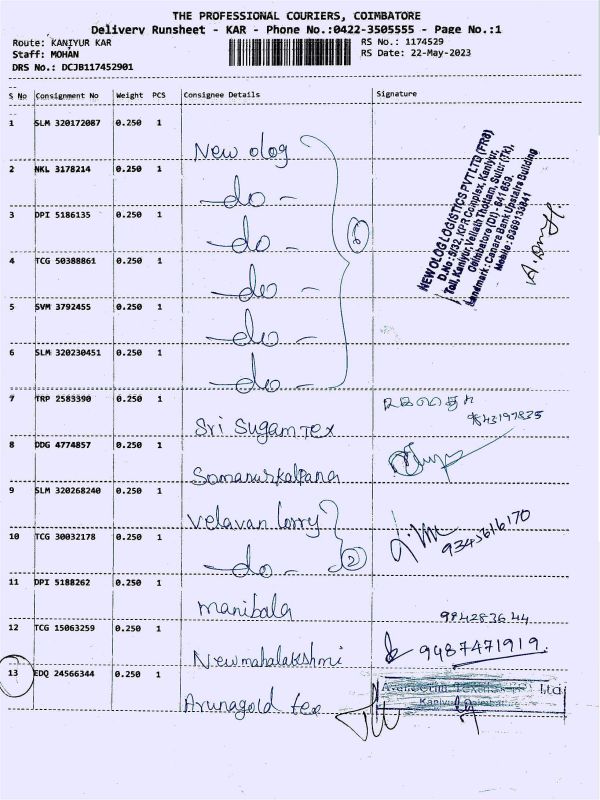 THE PROFESSIONAL COURIERS, COIMBATORE
Delivery Runsheet - KAR - Phone No.:0422-3505555 - Page No.:1
Route: KANIYUR KAR
RS No.: 1174529
Staff: MOHAN
RS Date: 22-May-2023
DRS No.: DCJB117452901
S No Consignment No Weight PCS Consignee Details Signature
1 SLM 320172087 0.250 1
New olog
2 NKL 3178214 0.250 1
-do-
3 DPI 5186135 0.250 1
-do-
4 TCG 50388861 0.250 1
-do-
5 SVM 3792455 0.250 1
-do-
6 SLM 320230451 0.250 1
-do-
NEW OLOG LOGISTICS PVT LTD (FR8)
D.No: 5/32, KPR Complex, Kaniyur,
Toll, Kaniyur, Thottam, Sulur (Tk),
Coimbatore (Dt) - 641 659.
Landmark: Canara Bank Upstairs Building
Mobile: 6369133841
7 TRP 2583390 0.250 1
Sri Sugam Tex
8 DDG 4774857 0.250 1
Somanurkalpana
9 SLM 320268240 0.250 1
Velavan lorry
10 TCG 30032178 0.250 1
-do- 2
9345616170
11 DPI 5188262 0.250 1
Manibala
12 TCG 15063259 0.250 1
Newmahalakshmi
9487471919
13 EDQ 24566344 0.250 1
Arunagold tex
Ltd